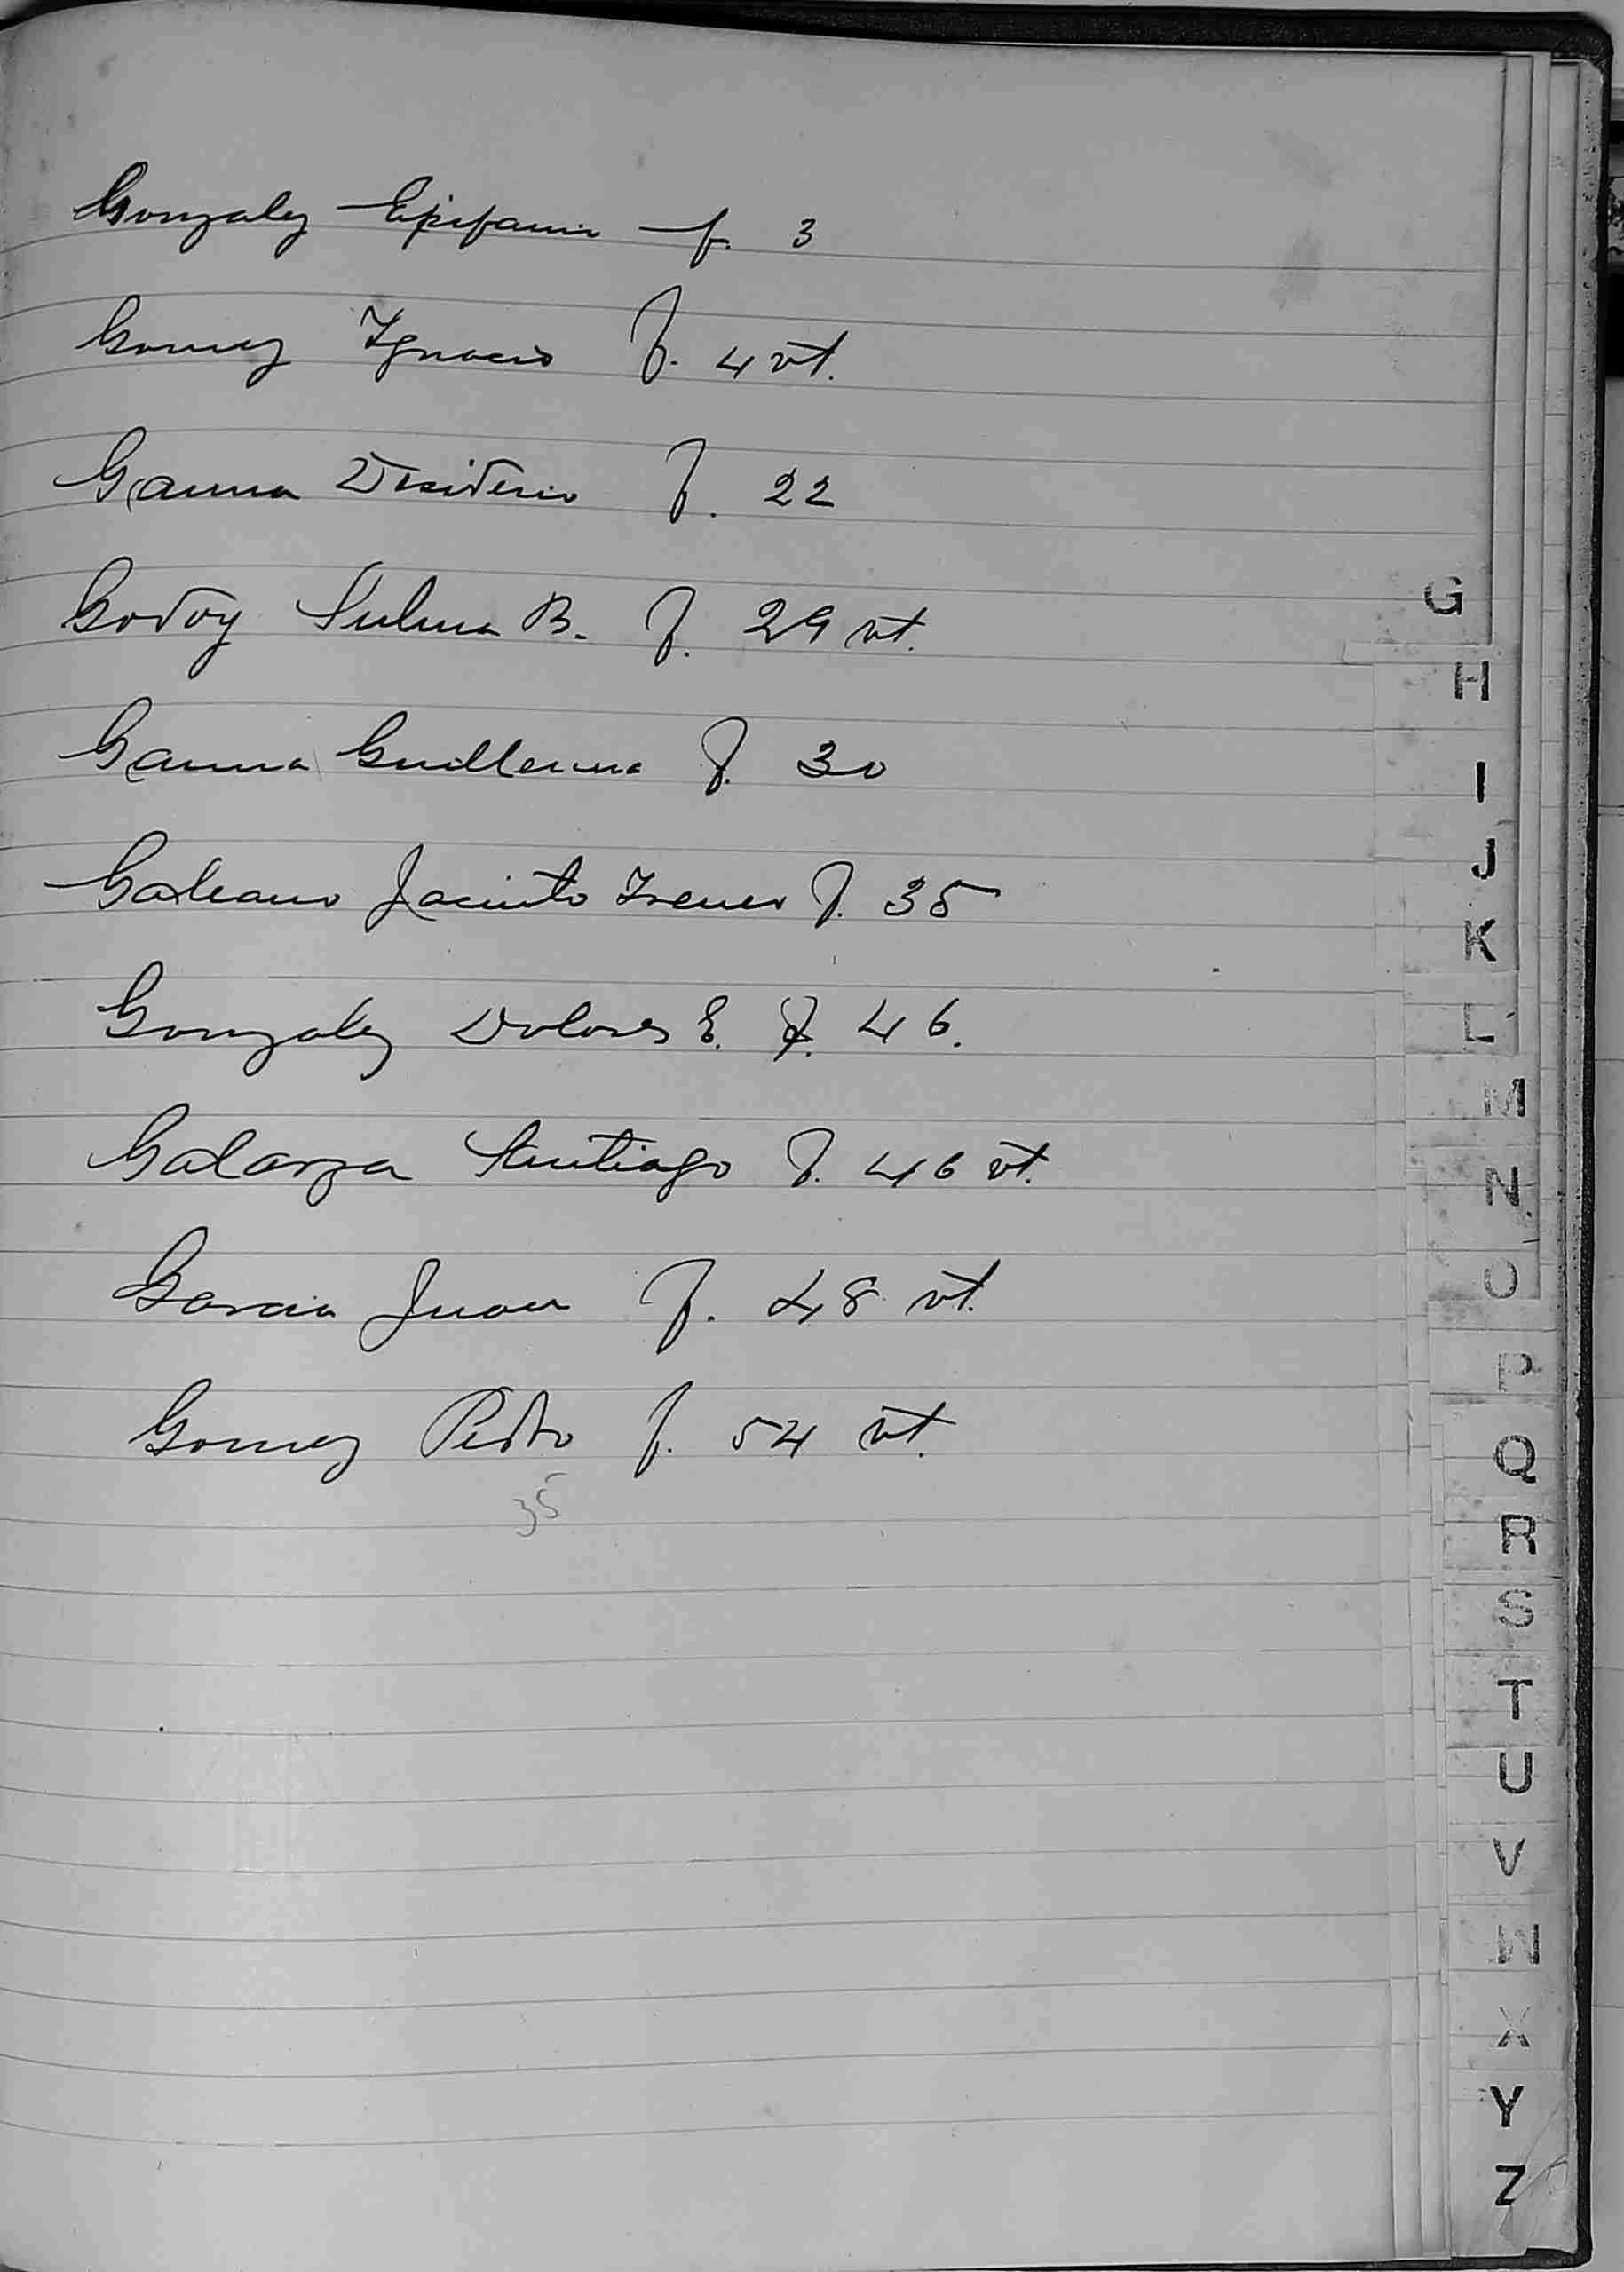 Gonzalez Epifanio f. 3
Gomez Ignacio f. 4 vt.
Gauna Desiderio f. 22
Godoy Sulma B. f. 29 vt.
Gauna Guillerma f. 30
Galeano Jacinto Ireneo f. 35
Gonzalez Dolores E. f. 46.
Galarza Santiago f. 46 vt.
Garcia Juan f. 48 vt.
Gomez Pedro f. 54 vt.
35
G
H
I
J
K
L
M
N
O
P
Q
R
S
T
U
V
W
X
Y
Z